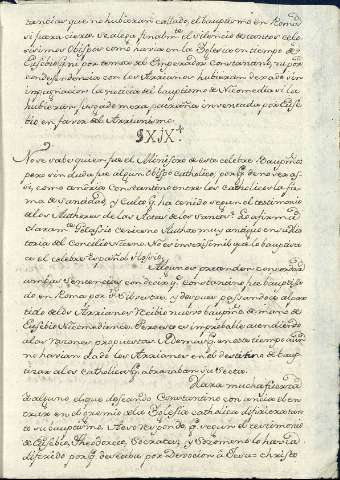 tancias que no hubieran callado, el bauptismo en Roma
si fuera cierto. Se alega finalmte. el silencio de tantos cele
sisimos Obispos como havia en la Yglesia en tiempo de
Eusebio; ni por temor al Emperador Constantino, ni por
condesendencia con los Arrianos hubieran dexado sin
impugnacion la noticia del bauptismo de Nicomedia si la
hubieran jusgado mera patraña inventada por Euse
bio en favor del Arrianismo.
§XIX
No se sabe quien fue el Ministro de este celebre Bauptismo
pero sin duda fue algun Obispo Catholico, porq. de no ser as
si, como tendria Constantino entre los Catholicos la fa
ma de Santidad, y Culto q. ha tenido segun el testimonio
de los Authores de las Actas de los Santos. Lo afirma
claramte. Gelasio Ciziceno Author muy antiguo en su His
toria del Concilio Niceno. No es inverisimil que lo bauptiza
ce el celebre Español Hosio.
Algunos pretenden concordar
ambas Sentencias con decir q. Constantino fue bauptisa
do en Roma por Sn. Silvestre, y despues passandose al par
tido de los Arrianos recibio nuevo bauptismo de mano de
Eusebio Nicomediense. Pero esto es improbable atendiendo
a las razones propuestas. Ademas q. en este tiempo aun
no havian dado los Arrianos en el desatino de baup
tizar a los Catholicos q. abrazaban su Secta.
Hara mucha fuerza
a alguno el que deseando Constantino con ancia el en
trar en el gremio de la Yglesia catholica difiriera tan
to su bauptismo. A esto respondo q. segun el testimonio
de Eusebio, Theodoreto, Socrates, y Sozomeno lo havia
diferido porq. deseaba por Devocion a Jesus christo